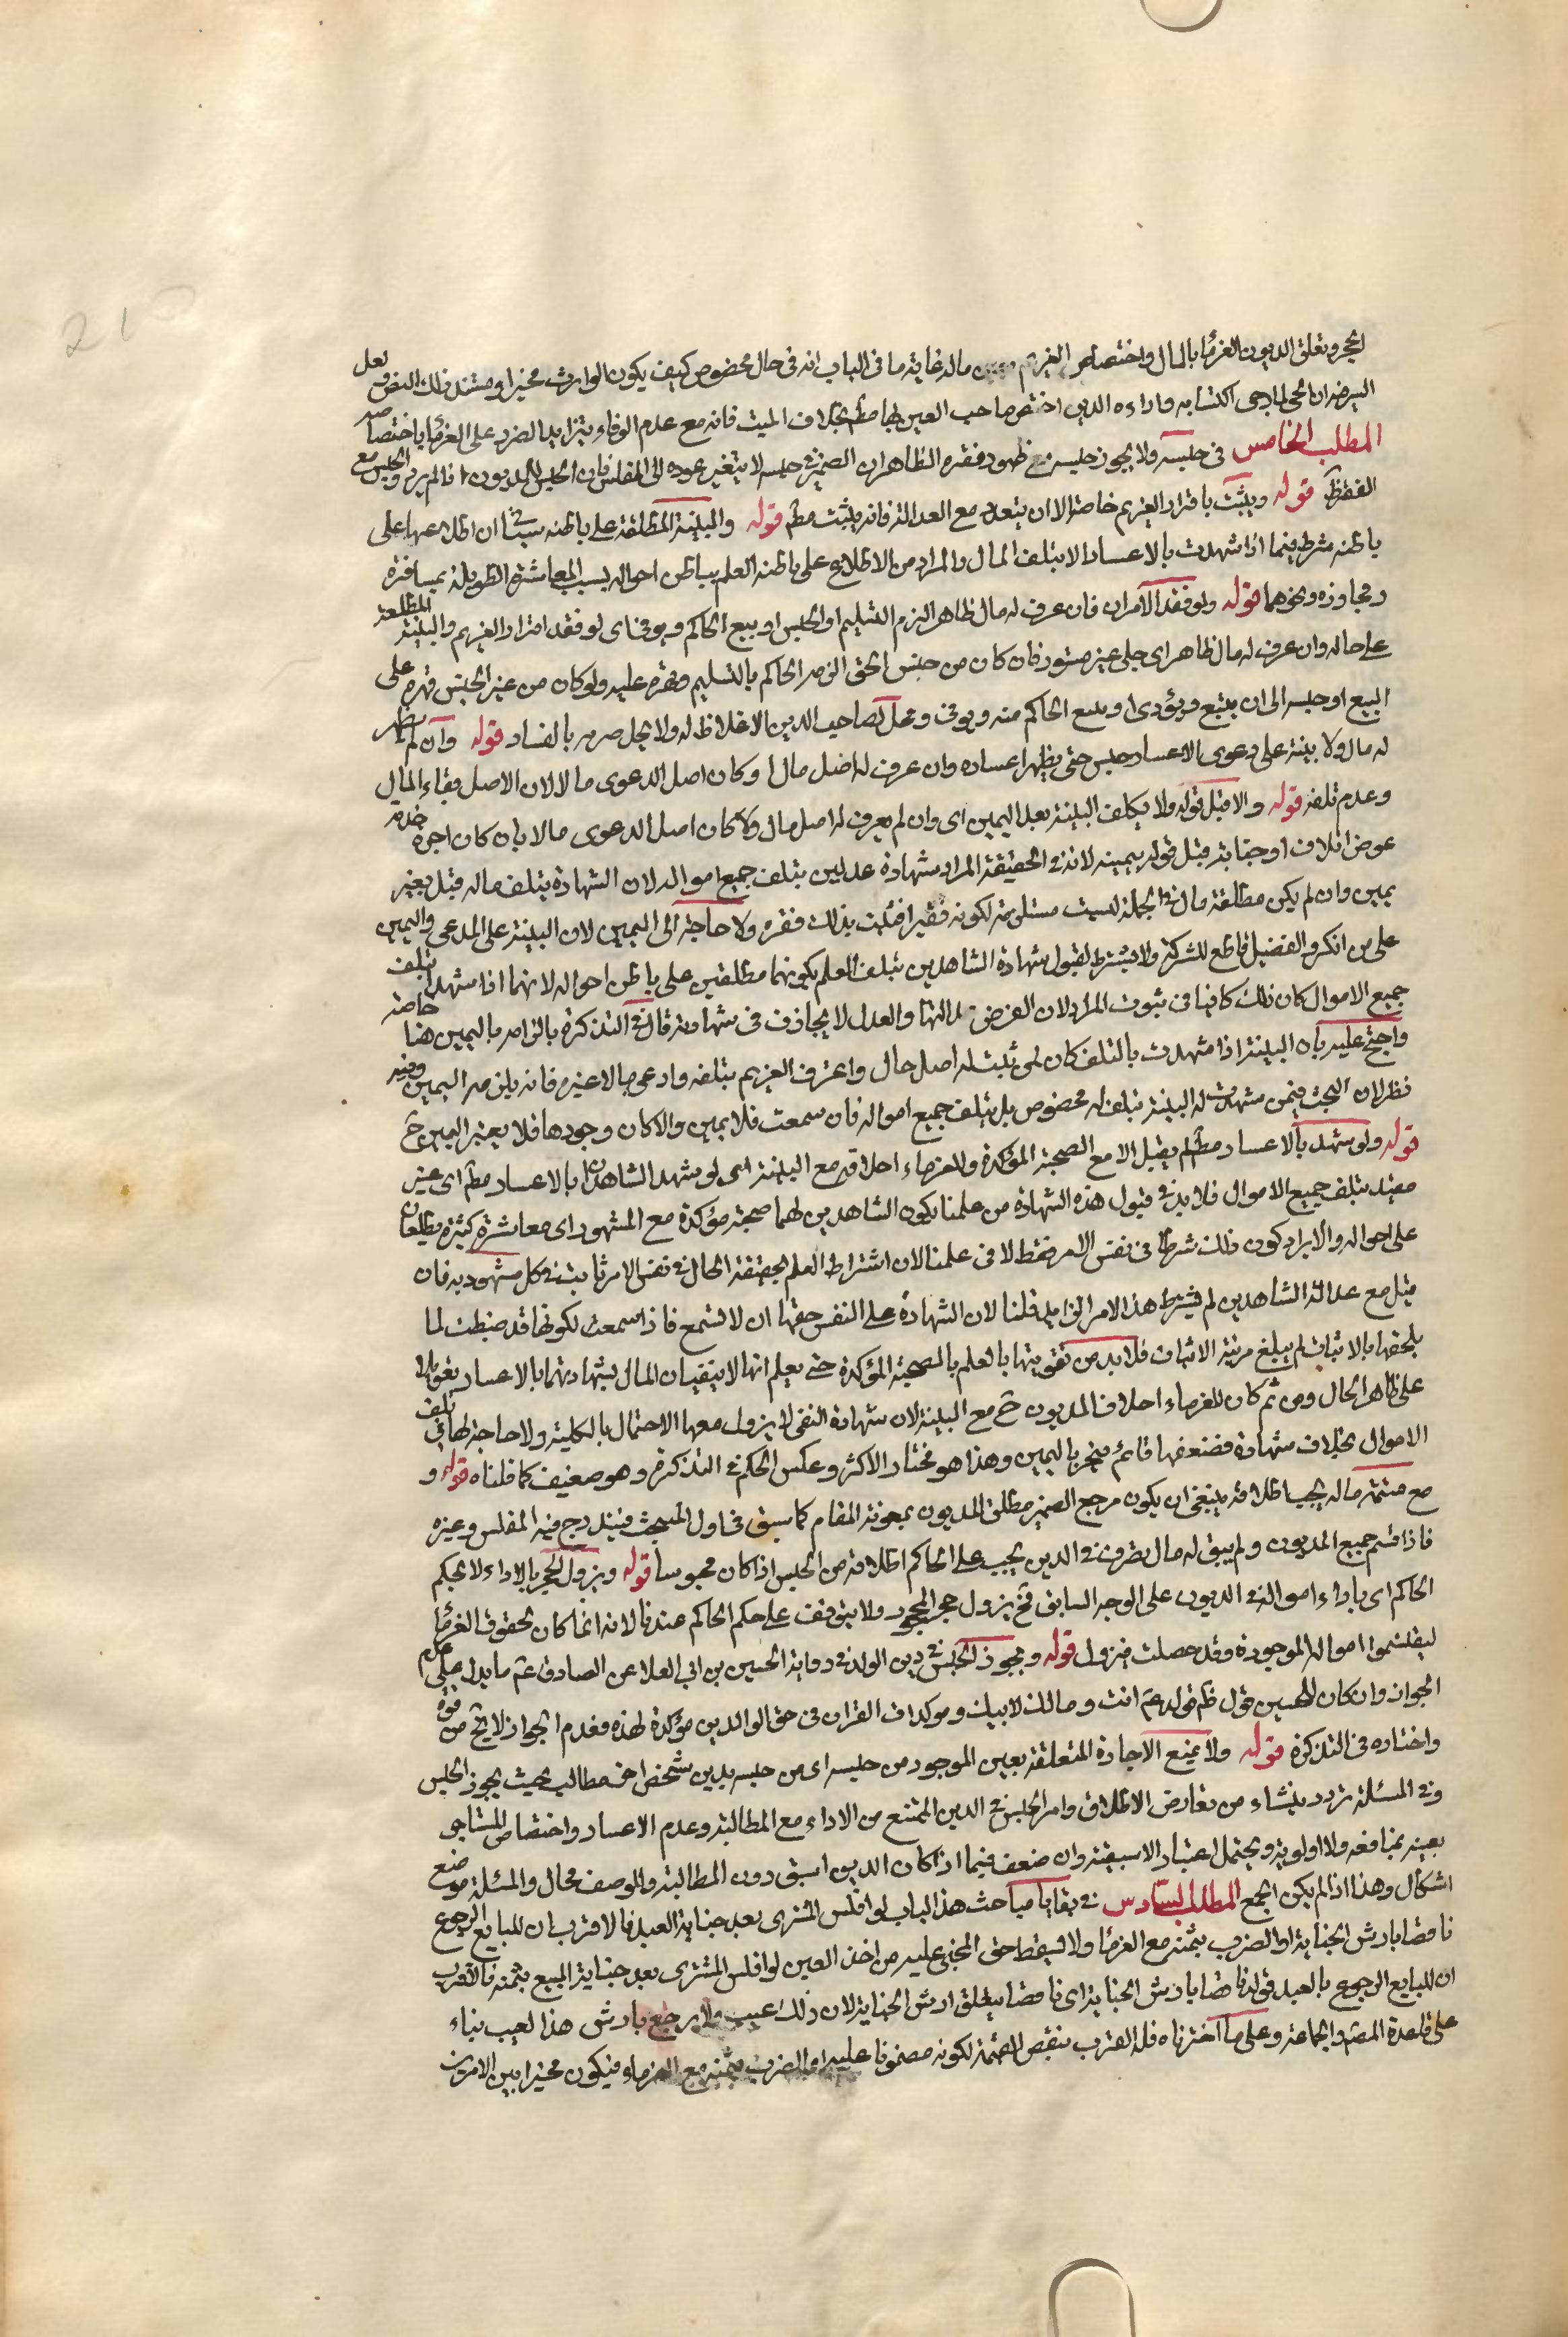 الحجر وتعلق الديون الغرما بالمال واختصاص الغريم بعين ماله غاية ما فى الباب انه فى حال مخصوص كيف يكون الوارث مخيرا ومستند ذلك النص ولعل
السر فيه ان الحى لما يرجى اكتسابه واداءه الدين اختص صاحب العين بها مطم بخلاف الميت فانه مع عدم الوفاء يتزايد الضرر على الغرما باختصاصه
المطلب الخامس فى حبسه ولا يجوز حبسه مع ظهور فقره الظاهر ان الضمير فى حبسه لا يتغير عوده الى المفلس فان الحبس للمديون اذا لم يرد والحبس مع
الفقر قوله ويثبت باقرار الغريم خاصة الا ان يتعدد مع العدالة فانه يثبت مطم قوله والبينة المطلعة على باطنه سيأتى ان اطلاعها على
باطنه شرط فيما اذا شهدت بالاعسار لا بتلف المال والمراد من الاطلاع على باطنه العلم بباطن احواله بسبب المعاشرة الطويلة بمسافرة
ومجاوزه ونحوهما قوله ولو فقد الامران فان عرف له مال ظاهر الزم التسليم او الحبس او يبيع الحاكم ويوفى اى لو فقد اقرار الغريم والبينة المطلعة
على حاله وان عرف له مال ظاهر اى جلى غير مستور فان كان من جنس الحق الزمه الحاكم بالتسليم وقهره عليه ولو كان من غير الجنس قهره على
البيع او حبسه الى ان يبيع ويؤدى او يبيع الحاكم منه ويوفى ويحل لصاحب الدين الاغلاظ له ولا يحل ضربه بالفساد قوله وان لم يظهر
له مال ولا بينة على دعوى الاعسار حبس حتى يظهر اعساره وان عرف له اصل مال او كان اصل الدعوى مالا لان الاصل بقاء المال
وعدم تلفه قوله والا قبل قوله ولا يكلف البينة بعد اليمين اى وان لم يعرف له اصل مال ولا كان اصل الدعوى مالا بان كان اجرة خدمة
عوض اتلاف او جناية قبل قوله بيمينه لانه فى الحقيقة المراد شهادة عدلين بتلف جميع امواله لان الشهادة بتلف ماله قبل بغير
يمين وان لم يكن مطلعة مال فى الجملة ليست مستلزمة لكونه فقيرا فثبت بذلك فقره ولا حاجة الى اليمين لان البينة على المدعى واليمين
على من انكر والتفصيل قاطع للشركة ولا يشترط لقبول شهادة الشاهدين بتلف العلم بكونهما مطلقين على باطن احواله لانهما اذا شهدا بتلف
جميع الاموال كان ذلك كافيا فى ثبوت المراد لان الغرض عدالتهما والعدل لا يجازف فى شهادته قال فى التذكرة بالزامه باليمين هنا خاصة
واحتج عليه بان البينة اذا شهدت بالتلف كان لمن ثبت له اصل حال واعترف الغريم بتلفه وادعى مالا غيره فانه يلزمه اليمين وفيه
نظر لان البحث فيمن شهدت له البينة بتلف له مخصوص بل بتلف جميع امواله فان سمعت فلا يمين والا كان وجودها فلا يعتبر اليمين ح
قوله ولو شهد بالاعسار مطم لم يقبل الا مع الصحبة المؤكدة وللغرماء احلافه مع البينة اى لو شهد الشاهدان بالاعسار مطم اى غير
مقيد بتلف جميع الاموال فلا بد فى قبول هذه الشهادة من علمنا بكون الشاهدين لهما صحبة مؤكدة مع المشهود اى معاشرة كثيرة يطلعان
على احواله والا يراد كون ذلك شرطا فى نفس الامر فقط لا فى علمنا لان اشتراط العلم بحقيقة الحال فى نفس الامر ثابت فى كل مشهود به فان
قيل مع عدالة الشاهدين لم يشترط هذا الامر الزايد قلنا لان الشهادة على النفى حقها ان لا تسمع فاذا سمعت لكونها قد ضبطت لما
يلحقها بالاثبات لم يبلغ مرتبة الاثبات فلا بد من تقويتها بالعلم بالصحبة المؤكدة حتى يعلم انها لا ينفيان المال بشهادتهما بالاعسار تعويلا
على ظاهر الحال ومن ثم كان للغرماء احلاف المديون ح مع البينة لان شهادة النفى لا يزول معها الاحتمال بالكلية ولا حاجة لها فى تلف
الاموال بخلاف شهادة فضعفها قائم فيجبر باليمين وهذا هو مختار الاكثر وعكس الحكم فى التذكرة وهو ضعيف كما قلناه قوله و
مع قسمة ماله يجب اطلاقه ينبغى ان يكون مرجع الضمير مطلق المديون بمعونة المقام كما سبق فى اول المبحث فيندرج فيه المفلس وغيره
فاذا قسم جميع المديون ولم يبق له مال يصرف فى الدين يجب على الحاكم اطلاقه من الحبس اذا كان محبوسا قوله ويزول الحجر بالاداء لا بحكم
الحاكم اى باداء امواله فى الديون على الوجه السابق فح يزول حجر المحجور ولا يتوقف على حكم الحاكم عندنا لانه انما كان لحقوق الغرما
ليقتسموا امواله الموجودة وقد حصلت فيزول قوله ويجوز الحبس فى دين الولد فى رواية الحسين بن ابى العلا عن الصادق عم ما يدل على عدم
الجواز وان كان للحسين قول ظم قوله عم انت ومالك لابيك وموكدات القران فى حق الوالدين مؤكدة لهذه فعدم الجواز لا يخ من قوة
واختاره فى التذكرة قوله ولا يمنع الاجارة المتعلقة بعين الموجود من حبسه اى من حبسه بدين شخص اخر مطالب بحيث يجوز الحبس
وفى المسئلة تردد ينشاء من تعارض الاطلاق وامر الحبس فى الدين الممتنع من الاداء مع المطالبة وعدم الاعسار واختصاص المستاجر
بعينه بمنافعه ولا اولوية ويحتمل اعتبار الاسبقية وان ضعف فيما اذا كان الدين اسبق دون المطالبة والوصف محال والمسئلة موضع
اشكال وهذا اذا لم يكن الجمع المطلب السادس فى بقايا مباحث هذا الباب لو افلس المشترى بعد جناية العبد فالاقرب ان للبايع الرجوع
ناقصا بارش الجناية او الضرب بثمنه مع الغرما ولا يسقط حق المجنى عليه من اخذ العين لو افلس المشترى بعد جناية المبيع بثمنه فالاقرب
ان للبايع الرجوع بالعبد قوله ناقصا بارش الجناية اى ناقصا بتعلق ارش الجناية لان ذلك عيب فلا يرجع بارش هذا لعيب بناء
على قاعدة المصم والجماعة وعلى ما اخترناه فله الضرب بنقص القيمة لكونه مضمونا عليه او الضرب بثمنه مع الغرماء فيكون مخيرا بين الامرين